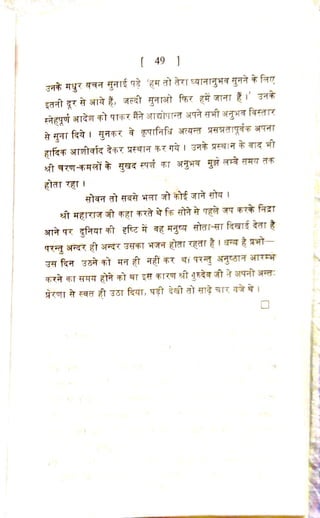 [ 49 ]
उनके मधुर वचन सुनाई पड़े 'हम तो तेरा ध्यानानुभव सुनने के लिए
इतनी दूर से आये हैं, जल्दी सुनाओ फिर हमें जाना है।' उनके
स्नेहपूर्ण आदेश को पाकर मैंने आद्योपान्त अपने सभी अनुभव विस्तार
से सुना दिये। सुनकर वे कृपानिधि अत्यन्त प्रसन्नतापूर्वक अपना
हार्दिक आशीर्वाद देकर प्रस्थान कर गये। उनके प्रस्थान के बाद भी
श्री चरण-कमलों के सुखद स्पर्श का अनुभव मुझे लम्बे समय तक
होता रहा।
सोवन तो सबसे भला जो कोई जाने सोय।
श्री महाराज जी कहा करते थे कि सोने से पहले जप करके निद्रा
आने पर दुनिया की दृष्टि में वह मनुष्य सोता-सा दिखाई देता है
परन्तु अन्दर ही अन्दर उसका भजन होता रहता है। धन्य है प्रभो—
उस दिन उठने को मन ही नहीं कर था परन्तु अनुष्ठान आरम्भ
करने का समय होने को था इस कारण श्री गुरुदेव जी ने अपनी अन्तः
प्रेरणा से स्वतः ही उठा दिया, घड़ी देखी तो साढ़े चार बजे थे।